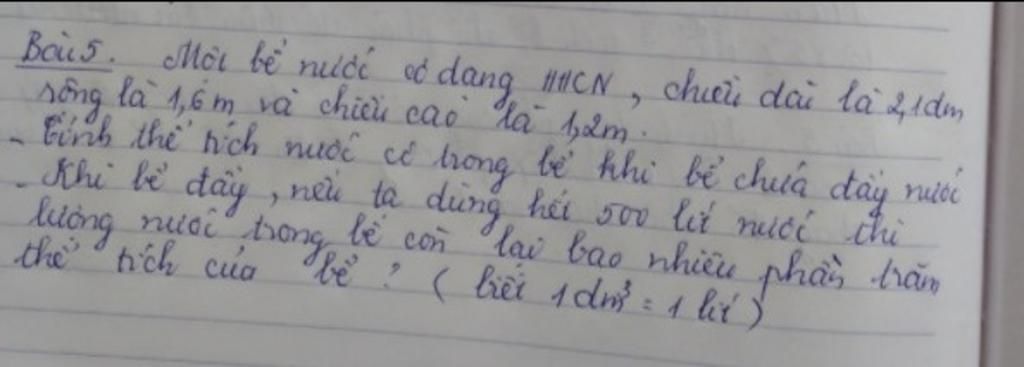 Bài 5. Một bể nước có dạng HHCN, chiều dài là 2,1dm
rộng là 1,6m và chiều cao là 1,2m.
- Tính thể tích nước có trong bể khi bể chứa đầy nước
- Khi bể đầy, nếu ta dùng hết 500 lít nước thì
lượng nước trong bể còn lại bao nhiêu phần trăm
thể tích của bể? (biết 1dm³ = 1 lít)